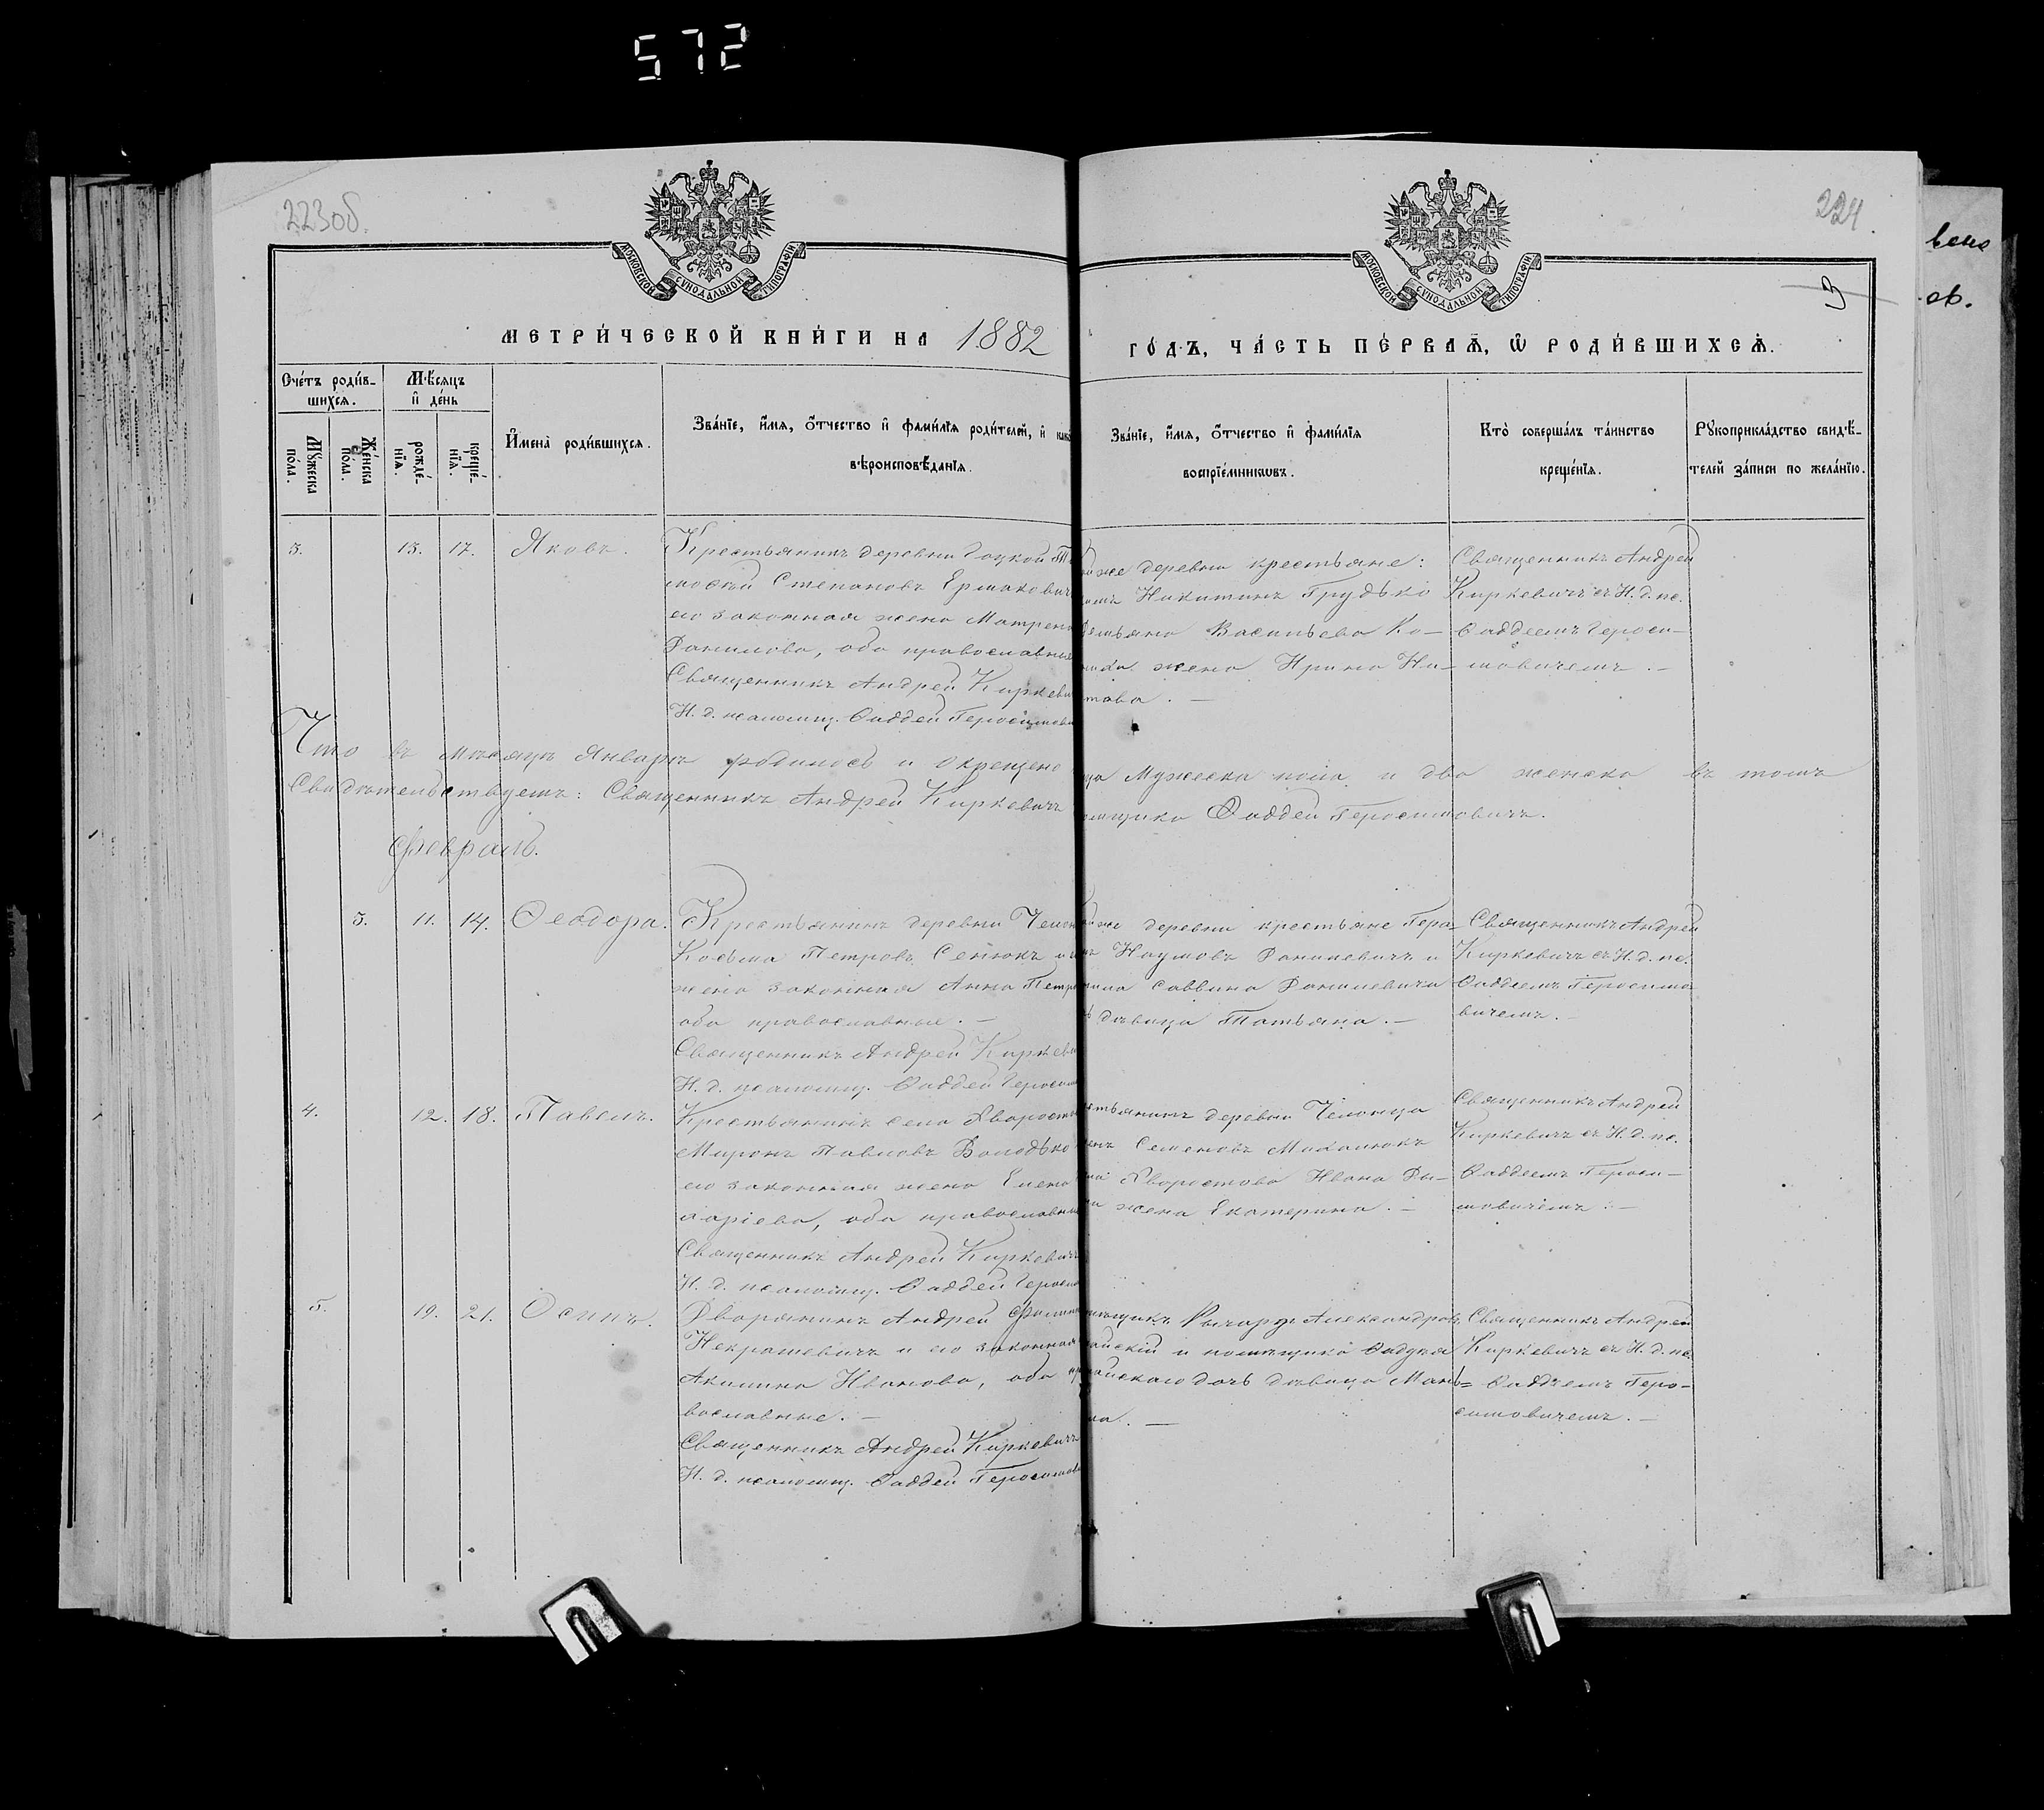 572
223об.
224
3
вено
ов.
МОСКОВСКОЙ СѴНОДАЛЬНОЙ ТИПОГРАФІИ
МОСКОВСКОЙ СѴНОДАЛЬНОЙ ТИПОГРАФІИ
МЕТРИ́ЧЕСКОЙ КНИ́ГИ НА 1882
ГО́ДЪ, ЧА́СТЬ ПЕ́РВАѦ, Ѿ РОДИ́ВШИХСѦ.
Сче́тъ роди́в-
шихсѧ.
Мѣ́сѧцъ
и҆ де́нь
Мꙋ́жеска
по́ла.
Же́нска
по́ла.
рожде́-
нїѧ.
креще́-
нїѧ.
И҆мена̀ роди́вшихсѧ.
Зва́нїе, и҆́мѧ, ѻ҆́тчество и҆ фами́лїѧ роди́телей, и҆
вѣроисповѣ́данїѧ.
Зва́нїе, и҆́мѧ, ѻ҆́тчество и҆ фами́лїѧ
воспрїе́мникѡвъ.
Кто̀ соверша́лъ та́инство
креще́нїѧ.
Рꙋкоприкла́дство свидѣ́-
телей за́писи по жела́нїю.
3. 15. 17. Яковъ.
Крестьянинъ деревни
Степановъ Ермакович
его законная жена Матрена
Данилова, оба православные
Священникъ Андрей Киркеви
И. д. псаломщ. Фаддей Герасимови
же деревни крестьяне:
Никитинъ Грудько
Демьяна Васильева Ко-
жена Ирина Иг-
това. —
Священникъ Андрей
Киркевичъ съ И. д. пс.
Фаддеемъ Гераси-
мовичемъ. —
Что въ мѣсяцѣ Январѣ родилось и окрещено
Свидѣтельствуемъ: Священникъ Андрей Киркевичъ
Мужеска пола и два женска въ томъ
омщика Фаддей Герасимовичъ.
Февраль.
3. 11. 14. Феодора.
Крестьянинъ деревни
Косьма Петровъ Сенюкъ и
жена законная Анна Петр
оба православные. —
Священникъ Андрей Киркеви
И. д. псаломщ. Фаддей Гераси
же деревни крестьяне Гера-
Наумовъ Данилевичъ и
Саввина Данилевича
дѣвица Татьяна. —
Священникъ Андрей
Киркевичъ съ И. д. пс.
Фаддеемъ Герасимо
вичемъ. —
4. 12. 18. Павелъ.
Крестьянинъ села Хворости
Миронъ Павловъ Володько
его законная жена Елена
аріева, оба православны
Священникъ Андрей Киркевичъ
И. д. псаломщ. Фаддей Гераси
стьянинъ деревни
Семеновъ Михалюкъ
Хворостова Ивана Ды-
жена Екатерина. —
Священникъ Андрей
Киркевичъ съ И. д. пс.
Фаддеемъ Гераси-
мовичемъ. —
5. 19. 21. Осипъ.
Дворянинъ Андрей
Некрашевичъ и его законная
Акилина Иванова, оба пр
вославные. —
Священникъ Андрей Киркевичъ
И. д. псаломщ. Фаддей Герасимов
мѣщикъ Рычардъ Александровъ
и помѣщика
дочь дѣвица Мань=
на. —
Священникъ Андрей
Киркевичъ съ И. д. пс.
Фаддеемъ Гера-
симовичемъ. —